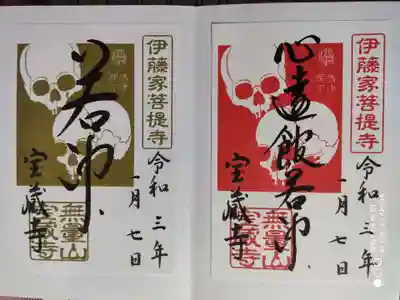 伊藤家菩提寺
心遠館若冲
令和三年
一月七日
宝蔵寺
無量山
寶蔵寺
伊藤家菩提寺
若冲
令和三年
一月七日
宝蔵寺
無量山
寶蔵寺